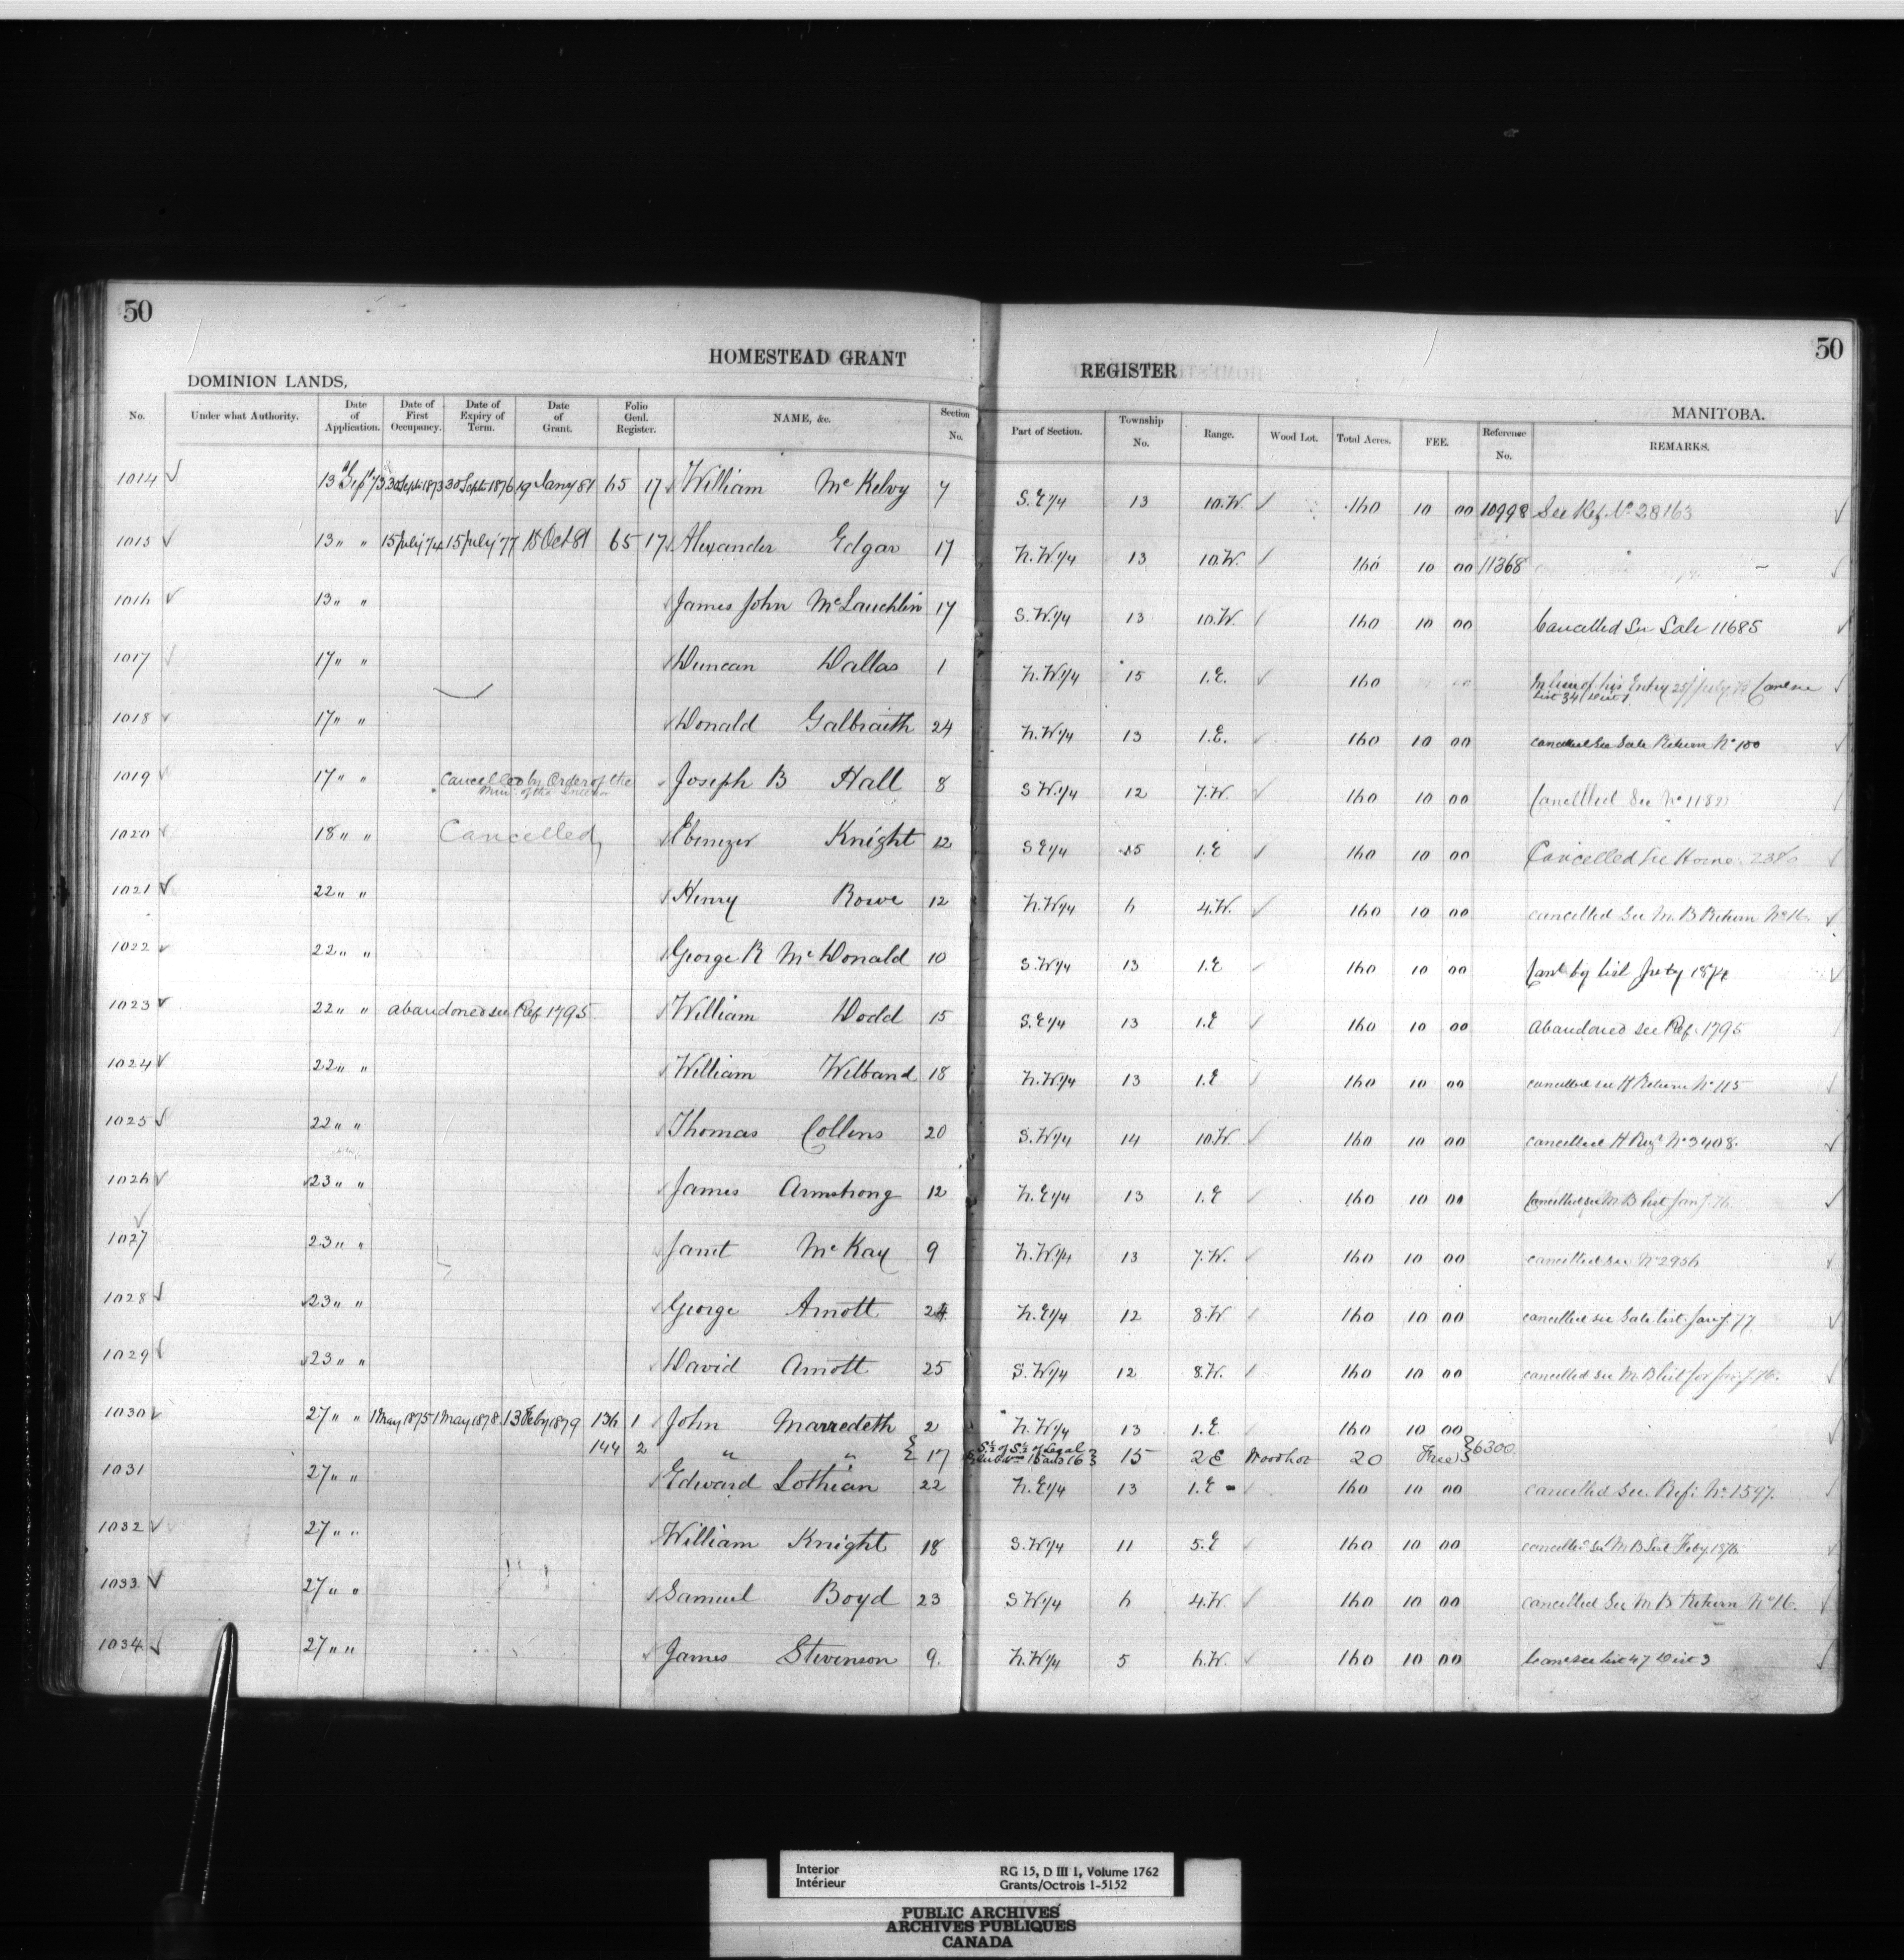 50
50
HOMESTEAD GRANT
REGISTER
DOMINION LANDS,
MANITOBA.
No. Under what Authority. Date of Application. Date of First Occupancy. Date of Expiry of Term. Date of Grant. Folio Genl. Register. NAME, &c. Section No. Part of Section. Township No. Range. Wood Lot. Total Acres. FEE. Reference No. REMARKS.
1014 13 Sep 73 30 Sept 1873 30 Sept 1876 19 Jany 81 65 17 William McKelvy 7 S.E 1/4 13 10.W. 160 10 00 10998 See Ref No. 28163
1015 13 " " 15 July 74 15 July 77 15 Oct 81 65 17 Alexander Edgar 17 N.W 1/4 13 10.W. 160 10 00 11368
1016 13 " " James John McLauchlin 17 S.W 1/4 13 10.W. 160 10 00 Cancelled See Sale 11685
1017 17 " " Duncan Dallas 1 N.W 1/4 15 1.E. 160 In lieu of his Entry 25 July
List 34 Dist 1
1018 17 " " Donald Galbraith 24 N.W 1/4 13 1.E. 160 10 00 cancelled See Sale Return No 100
1019 17 " " Cancelled by Order of the Min. of the Interior Joseph B Hall 8 S.W 1/4 12 7.W. 160 10 00 Cancelled See No
1020 18 " " Cancelled Ebenezer Knight 12 S.E 1/4 15 1.E 160 10 00 Cancelled See Home.
1021 22 " " Henry Rowe 12 N.W 1/4 6 4.W. 160 10 00 cancelled See M.B Return No 16.
1022 22 " " George R McDonald 10 S.W 1/4 13 1.E 160 10 00 Canl by list 1874
1023 22 " " abandoned see Ref 1795 William Dodd 15 S.E 1/4 13 1.E 160 10 00 abandoned see Ref. 1795
1024 22 " " William Wilband 18 N.W 1/4 13 1.E 160 10 00 cancelled see H Return No 115
1025 22 " " Thomas Collins 20 S.W 1/4 14 10.W. 160 10 00 cancelled H Reg No 3408.
1026 23 " " James Armstrong 12 N.E 1/4 13 1.E 160 10 00 Cancelled see M B list Jany. 76.
1027 23 " " Janet McKay 9 N.W. 1/4 13 7.W. 160 10 00 cancelled see No 2956
1028 23 " " George Arnott 24 N.E 1/4 12 8.W 160 10 00 cancelled see Sale list Jany. 77
1029 23 " " David Arnott 25 S.W 1/4 12 8.W. 160 10 00 cancelled see M.B list for Jany. 76.
1030 27 " " 1 May 1875 1 May 1878 13 Feby 1879 136 1 John Marredeth 2 N.W 1/4 13 1.E 160 10 00
144 2 " " 17 S½ of S½ of Legal Subdvn 15 and 16 15 2E Woodlot 20 Free 6300
1031 27 " " Edward Lothian 22 N.E 1/4 13 1.E 160 10 00 cancelled See Ref: No. 1597.
1032 27 " " William Knight 18 S.W 1/4 11 5.E 160 10 00 cancelled see M B List Feby. 1876.
1033 27 " " Samuel Boyd 23 S.W 1/4 6 4.W. 160 10 00 cancelled See M B Return No 16.
1034 27 " " James Stevenson 9. N.W 1/4 5 6.W. 160 10 00 Canc see list 47 Dist 3
Interior RG 15, D III 1, Volume 1762
Intérieur Grants/Octrois 1-5152
PUBLIC ARCHIVES
ARCHIVES PUBLIQUES
CANADA